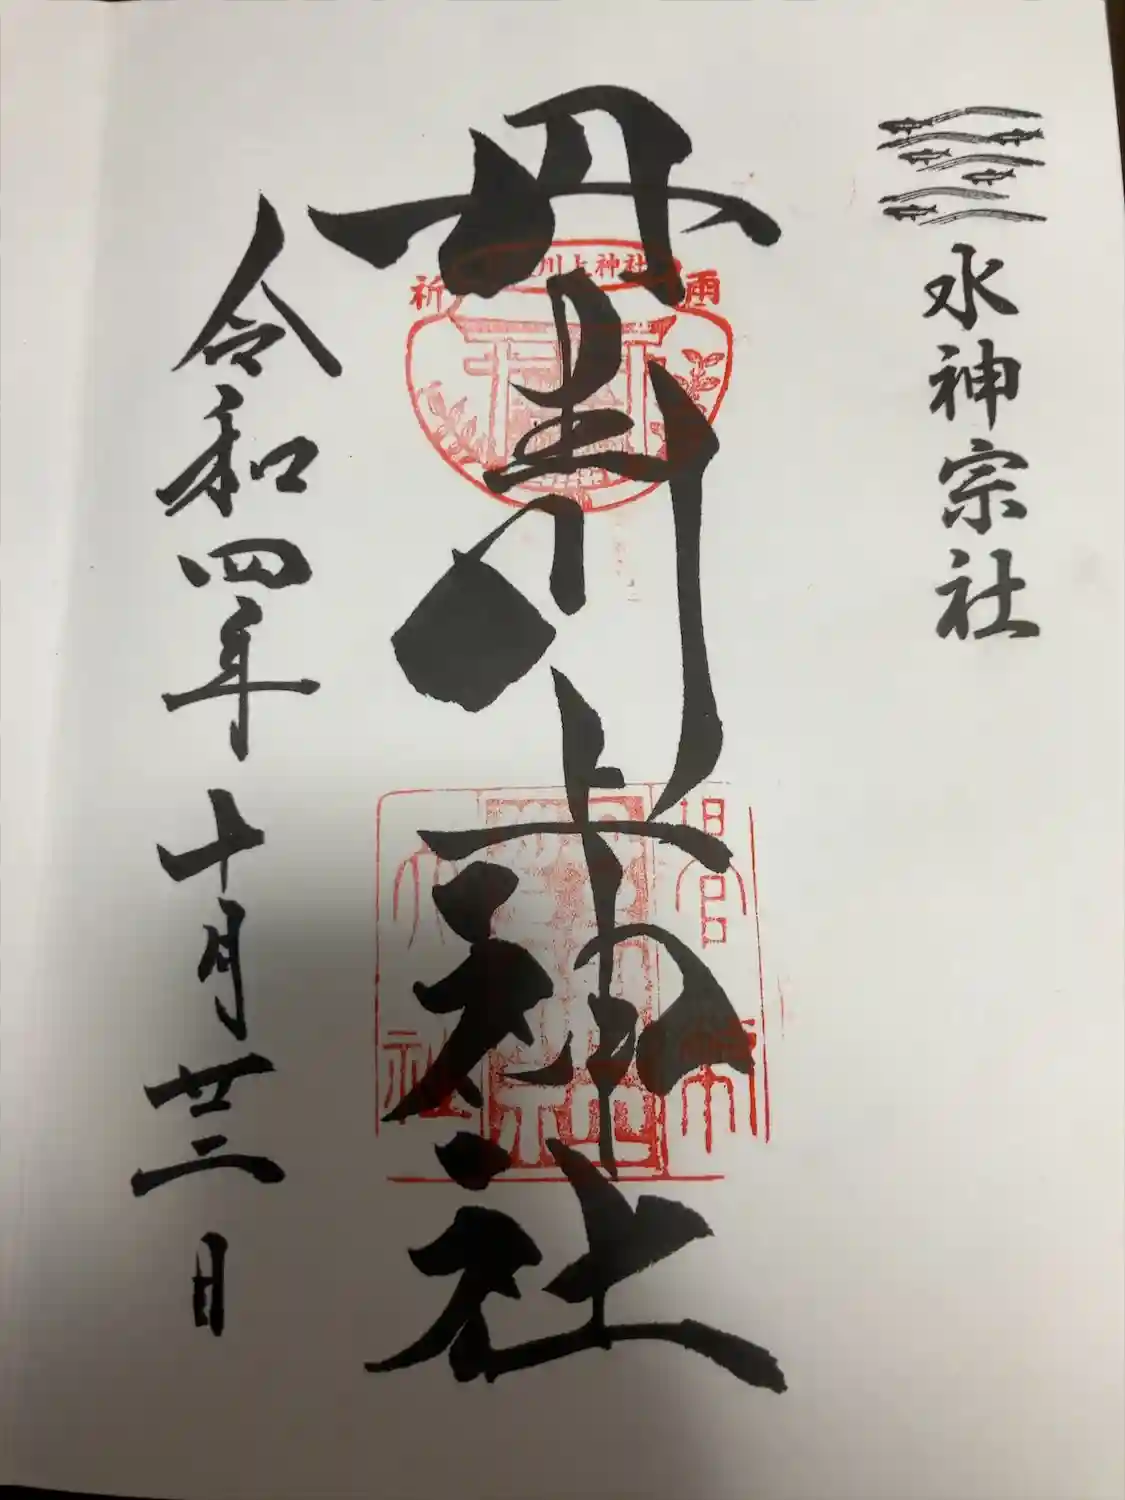 水神宗社
丹生川上神社
川上神社
祈雨
旧官幣
大社
令和四年十月廿二日